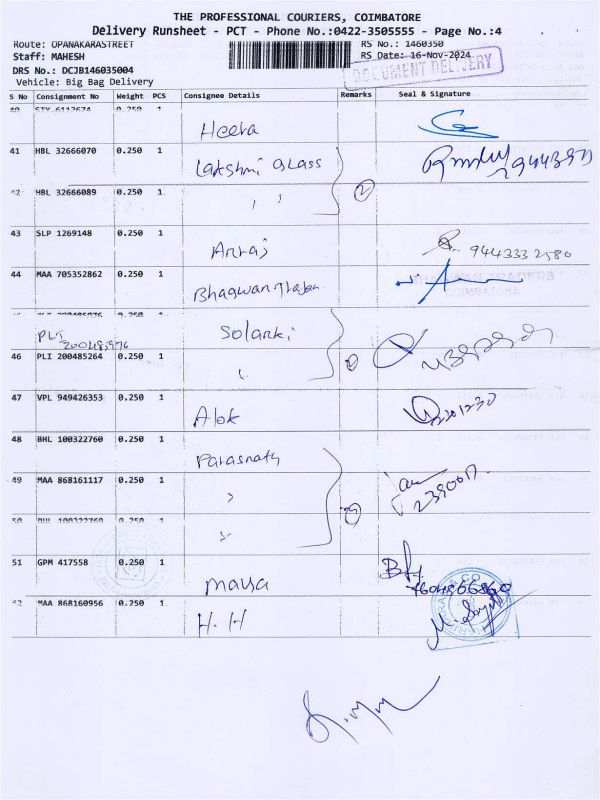 THE PROFESSIONAL COURIERS, COIMBATORE
Delivery Runsheet - PCT - Phone No.:0422-3505555 - Page No.:4
Route: OPANAKARASTREET RS No.: 1460350
Staff: MAHESH RS Date: 16-Nov-2024
DOCUMENT DELIVERY
DRS No.: DCJB146035004
Vehicle: Big Bag Delivery
S No Consignment No Weight PCS Consignee Details Remarks Seal & Signature
Heera
41 HBL 32666070 0.250 1 Lakshmi Glass
42 HBL 32666089 0.250 1 " 2
43 SLP 1269148 0.250 1
9443332580
44 MAA 705352862 0.250 1
Bhagwan
Solanki
PLI 200485976
46 PLI 200485264 0.250 1 "
47 VPL 949426353 0.250 1
Alok
48 BHL 100322760 0.250 1
Parasnath
49 MAA 868161117 0.250 1 "
50 BHL 100322769 0.250 1 "
51 GPM 417558 0.250 1
Maya
52 MAA 868160956 0.250 1
H.H